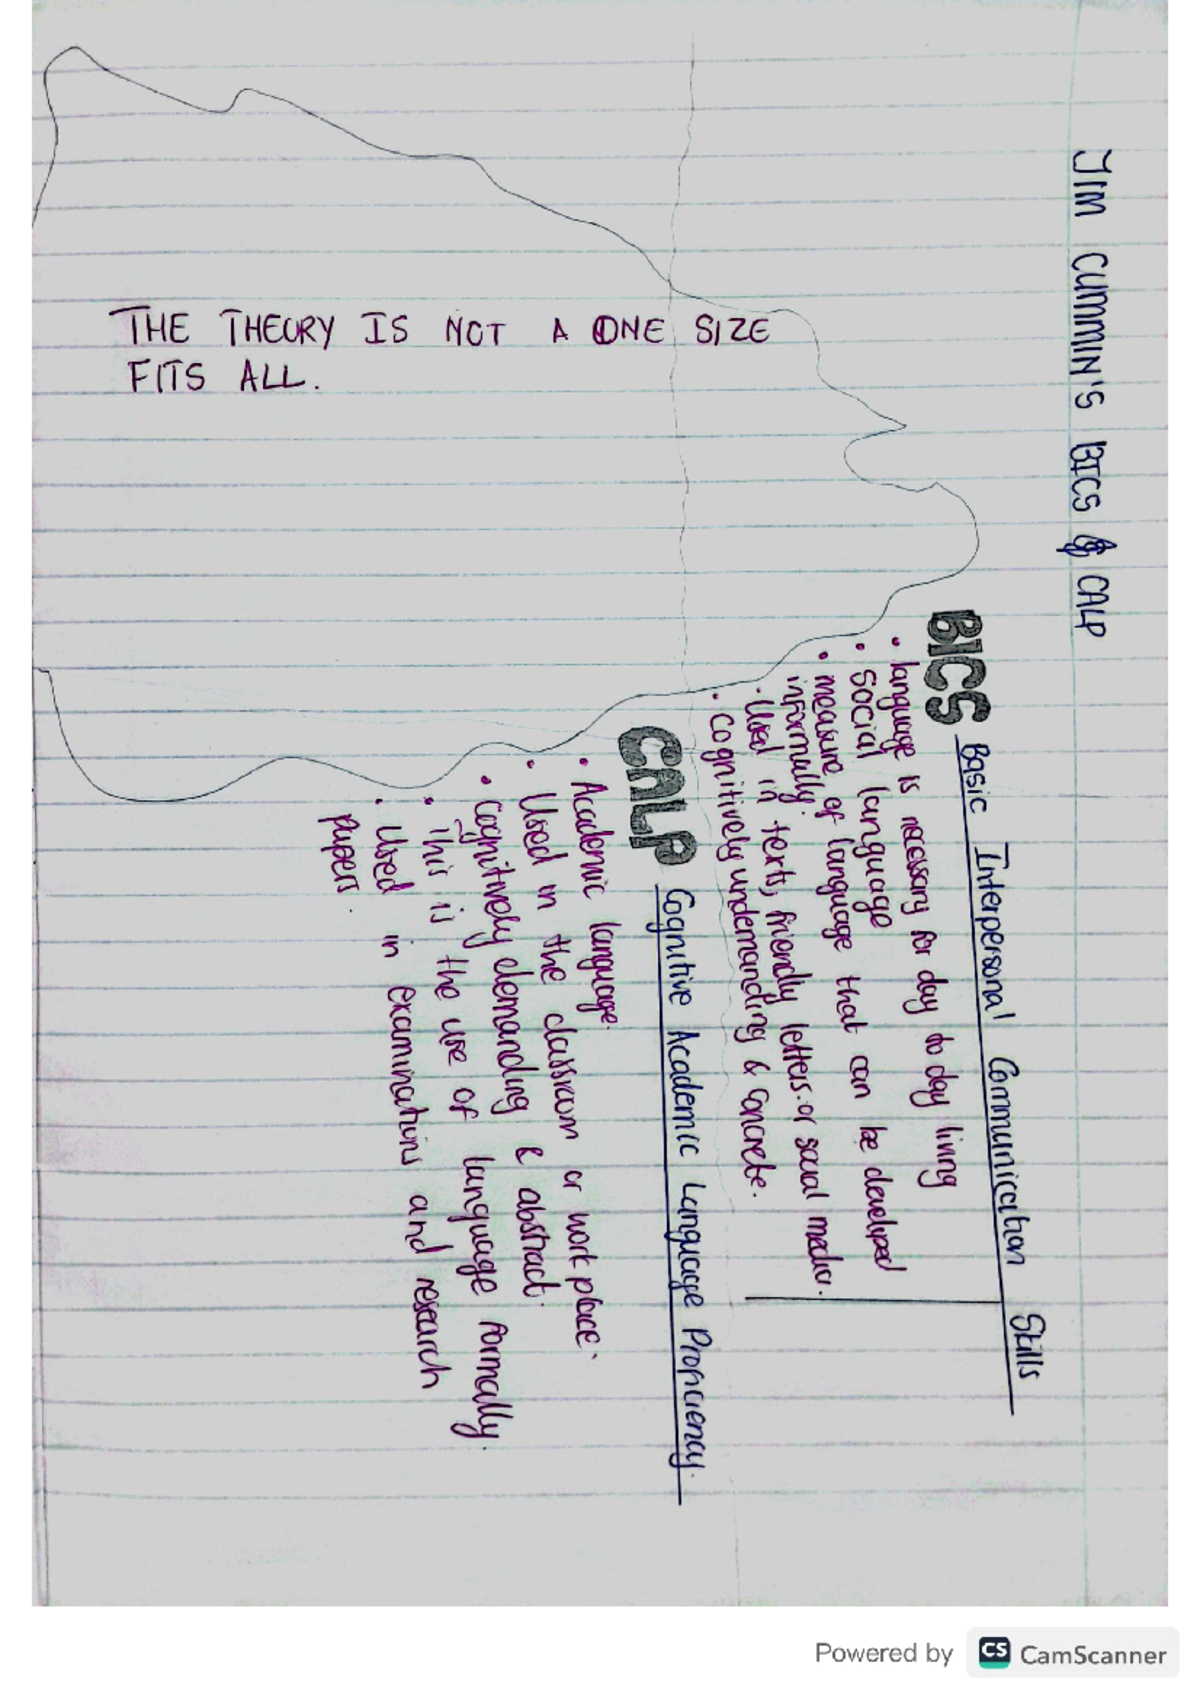 JIM CUMMIN'S BICS & CALP
BICS Basic Interpersonal Communication Skills
• language is necessary for day to day living
• social language
• measure of language that can be developed
informally.
• Used in texts, friendly letters or social media.
• cognitively undemanding & concrete.
CALP Cognitive Academic Language Proficiency.
• Academic language.
• Used in the classroom or work place.
• Cognitively demanding & abstract.
• This is the use of language formally.
• Used in examinations and research
papers.
THE THEORY IS NOT A ONE SIZE
FITS ALL.
Powered by CS CamScanner